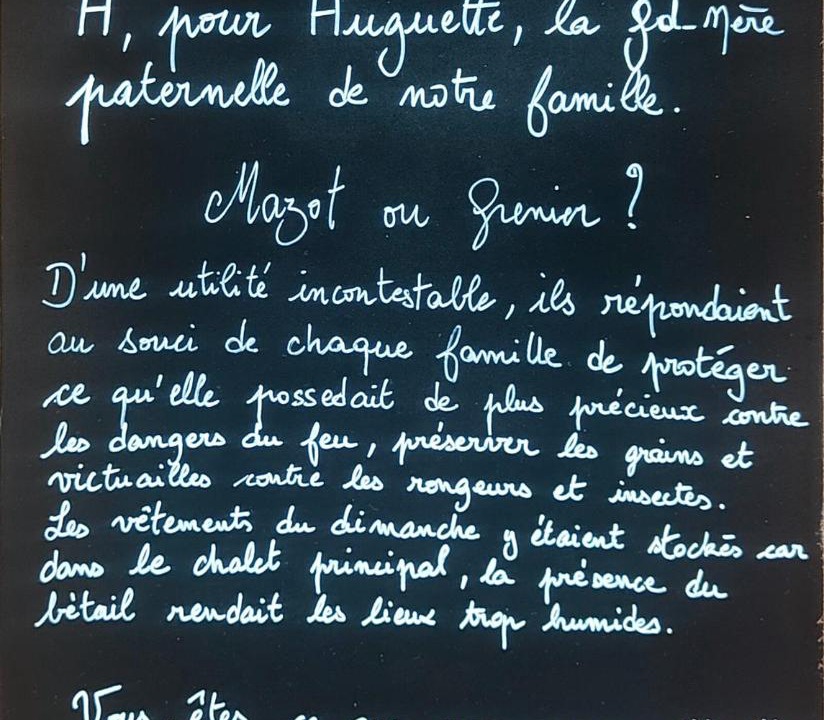 H, pour Huguette, la gd-mère
paternelle de notre famille.
Mazot ou Grenier ?
D'une utilité incontestable, ils répondaient
au souci de chaque famille de protéger
ce qu'elle possedait de plus précieux contre
les dangers du feu, préserver les grains et
victuailles contre les rongeurs et insectes.
Les vêtements du dimanche y étaient stockés car
dans le chalet principal, la présence du
bétail rendait les lieux trop humides.
Vous êtes